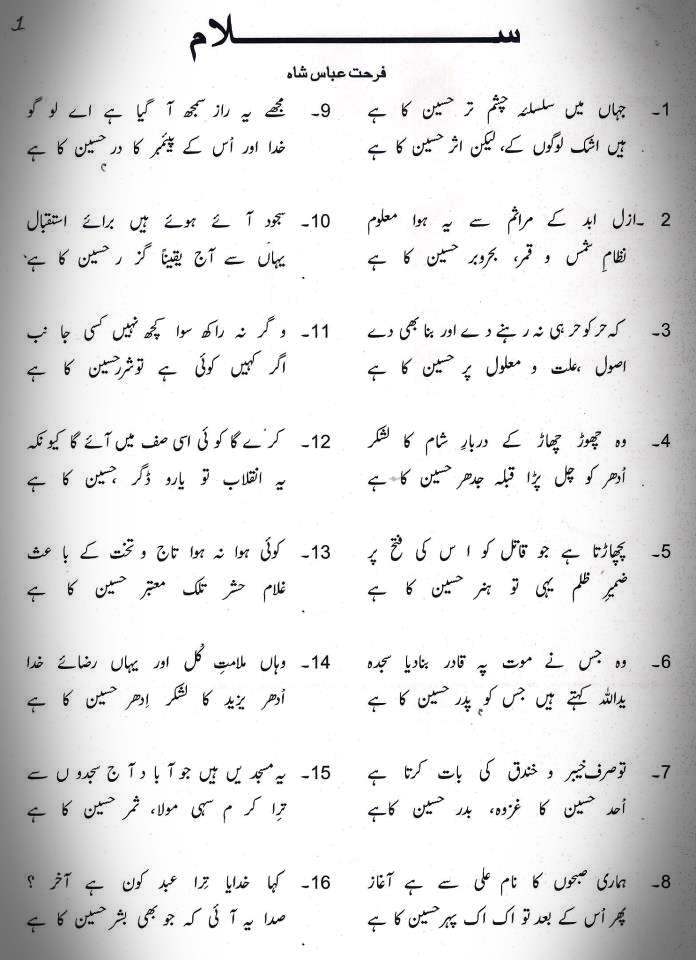 1
ســـــلام
فرحت عباس شاہ
1۔ جہاں میں سلسلئہ چشم تر حسین کا ہے
ہیں اشک لوگوں کے، لیکن اثر حسین کا ہے
2۔ ازل ابد کے مراثم سے یہ ہوا معلوم
نظامِ شمس و قمر، بحروبر حسین کا ہے
3۔ کہ حر کو حر ہی نہ رہنے دے اور بنا بھی دے
اصول ،علت و معلول پر حسین کا ہے
4۔ وہ چھوڑ چھاڑ کے دربارِ شام کا لشکر
اُدھر کو چل پڑا قبلہ جدھر حسین کا ہے
5۔ پچھاڑتا ہے جو قاتل کو اس کی فتح پر
ضمیرِ ظلم یہی تو ہنر حسین کا ہے
6۔ وہ جس نے موت پہ قادر بنادیا سجدہ
یداللہ کہتے ہیں جس کو پدر حسین کا ہے
7۔ تو صرف خیبر و خندق کی بات کرتا ہے
اُحد حسین کا غزوہ، بدر حسین کاہے
8۔ ہماری صبحوں کا نام علی سے ہے آغاز
پھر اُس کے بعد تو اک اک پہر حسین کا ہے
9۔ مجھے یہ راز سمجھ آ گیا ہے اے لو گو
خدا اور اُس کے پیئمبر کا در حسین کا ہے
10۔ سجود آ ئے ہوئے ہیں برائے استقبال
یہاں سے آج یقیناً گز ر حسین کا ہے
11۔ و گر نہ راکھ سوا کچھ نہیں کسی جا نب
اگر کہیں کوئی ہے تو شررحسین کا ہے
12۔ کر ے گا کو ئی اسی صف میں آئے گا کیو نکہ
یہ انقلاب تو یارو ڈگر ،حسین کا ہے
13۔ کوئی ہوا نہ ہوا تاج و تخت کے با عث
غلام حشر تلک معتبر حسین کا ہے
14۔ وہاں ملامتِ کُل اور یہاں رضائے خدا
اُدھر یزید کا لشکر اِدھر حسین کا ہے
15۔ یہ مسجد یں ہیں جو آ با د آ ج سجدو ں سے
ترا کر م سہی مولا، ثمر حسین کا ہے
16۔ کہا خدایا تِرا عبد کون ہے آخر ؟
صدا یہ آ ئی کہ جو بھی بشر حسین کا ہے